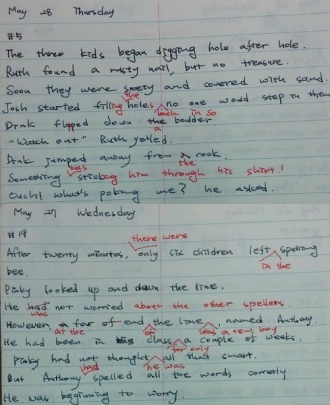 May 28 Thursday
#5
The three kids began digging hole after hole.
Ruth found a rusty nail, but no treasure.
Soon they were sweaty and covered with sand.
the
Josh started filling holes no one would step in them
back in so
Dink flopped down the boulder
a
"Watch out" Ruth yelled.
Dink jumped away from a rock.
was the
Something sticking him through his shirt!
Ouch! what's poking me? he asked.
May 27 Wednesday
#19
there were
After twenty minutes, only six children left spelling
bee. in the
Pinky looked up and down the line.
He had not worried about the other spellers.
was
However, a far of end the line, named Anthony.
at the of was a new boy
He had been in class a couple of weeks.
for only
Pinky had not thought all that smart.
had he was
But Anthony spelled all the words correctly
He was beginning to worry.